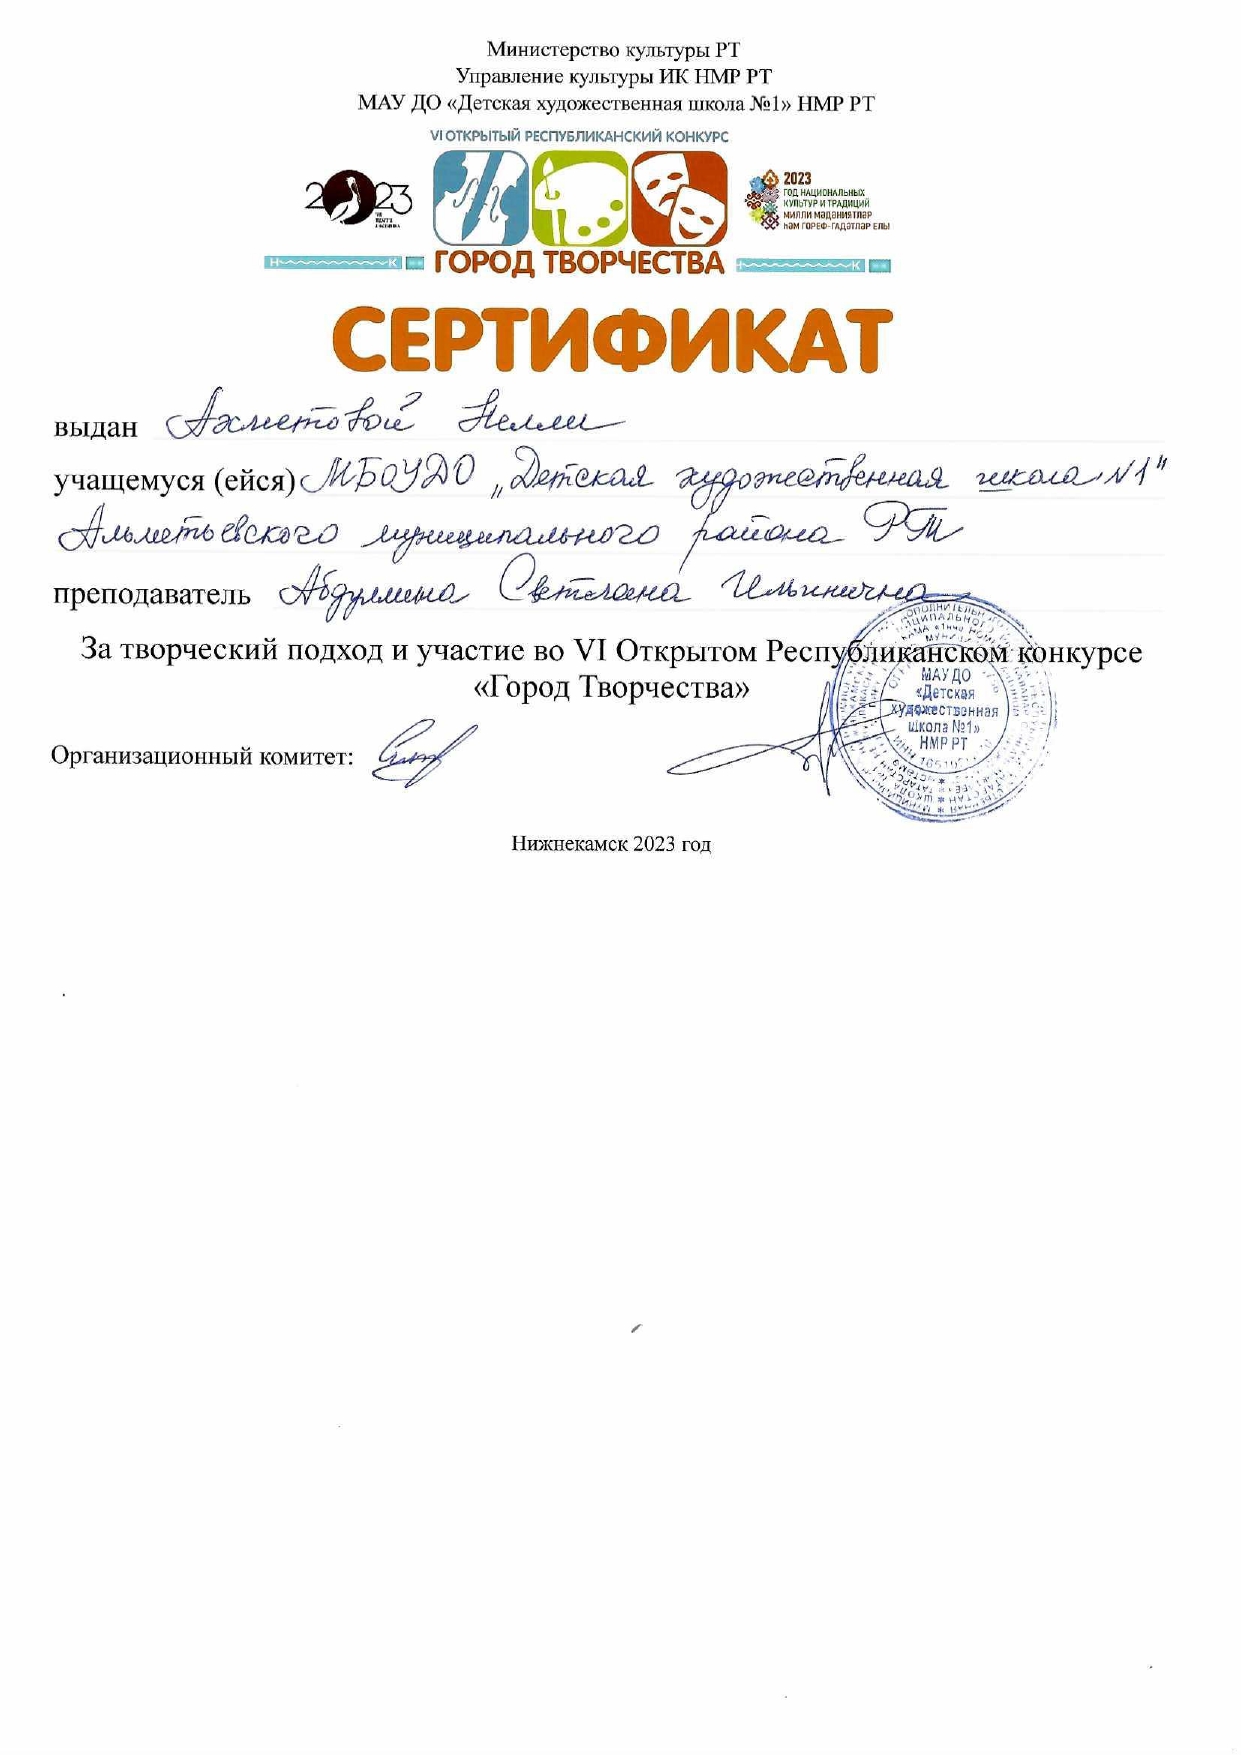 Министерство культуры РТ
Управление культуры ИК НМР РТ
МАУ ДО «Детская художественная школа №1» НМР РТ
VI ОТКРЫТЫЙ РЕСПУБЛИКАНСКИЙ КОНКУРС
2023
2023
ГОД НАЦИОНАЛЬНЫХ
КУЛЬТУР И ТРАДИЦИЙ
МИЛЛИ МӘДӘНИЯТЛӘР
ҺӘМ ГОРЕФ-ГАДӘТЛӘР ЕЛЫ
Н К ГОРОД ТВОРЧЕСТВА К
СЕРТИФИКАТ
выдан Ахметовой Нелли
учащемуся (ейся) МБОУДО „Детская художественная школа №1"
Альметьевского муниципального района РТ
преподаватель Светлана Ильинична
За творческий подход и участие во VI Открытом Республиканском конкурсе
«Город Творчества»
МАУ ДО
«Детская
художественная
школа №1»
НМР РТ
Организационный комитет:
Нижнекамск 2023 год